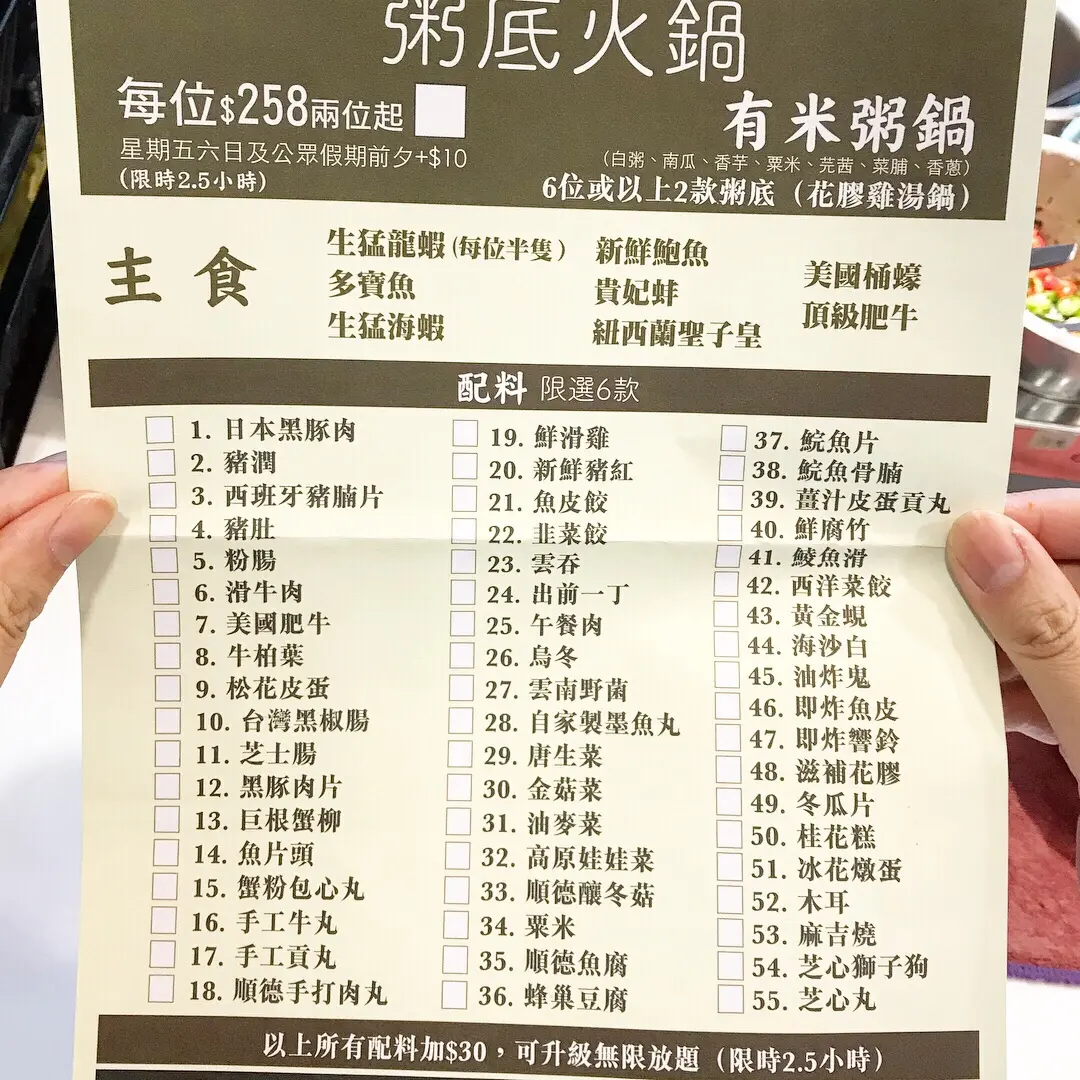 粥底火鍋
每位$258兩位起
星期五六日及公眾假期前夕+$10
(限時2.5小時)
有米粥鍋
(白粥、南瓜、香芋、粟米、芫茜、菜脯、香蔥)
6位或以上2款粥底（花膠雞湯鍋）
主食
生猛龍蝦(每位半隻)
多寶魚
生猛海蝦
新鮮鮑魚
貴妃蚌
紐西蘭聖子皇
美國桶蠔
頂級肥牛
配料 限選6款
1. 日本黑豚肉
2. 豬潤
3. 西班牙豬腩片
4. 豬肚
5. 粉腸
6. 滑牛肉
7. 美國肥牛
8. 牛柏葉
9. 松花皮蛋
10. 台灣黑椒腸
11. 芝士腸
12. 黑豚肉片
13. 巨根蟹柳
14. 魚片頭
15. 蟹粉包心丸
16. 手工牛丸
17. 手工貢丸
18. 順德手打肉丸
19. 鮮滑雞
20. 新鮮豬紅
21. 魚皮餃
22. 韭菜餃
23. 雲吞
24. 出前一丁
25. 午餐肉
26. 烏冬
27. 雲南野菌
28. 自家製墨魚丸
29. 唐生菜
30. 金菇菜
31. 油麥菜
32. 高原娃娃菜
33. 順德釀冬菇
34. 粟米
35. 順德魚腐
36. 蜂巢豆腐
37. 鯇魚片
38. 鯇魚骨腩
39. 薑汁皮蛋貢丸
40. 鮮腐竹
41. 鯪魚滑
42. 西洋菜餃
43. 黃金蜆
44. 海沙白
45. 油炸鬼
46. 即炸魚皮
47. 即炸響鈴
48. 滋補花膠
49. 冬瓜片
50. 桂花糕
51. 冰花燉蛋
52. 木耳
53. 麻吉燒
54. 芝心獅子狗
55. 芝心丸
以上所有配料加$30，可升級無限放題（限時2.5小時）